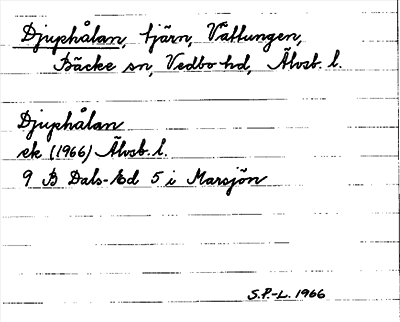 Djuphålan, tjärn, Vättungen,
Bäcke sn, Vedbo hd, Älvsb. l.
Djuphålan
ek (1966) Älvsb. l.
9 B Dals-Ed 5 i Marsjön
S.F.-L. 1966